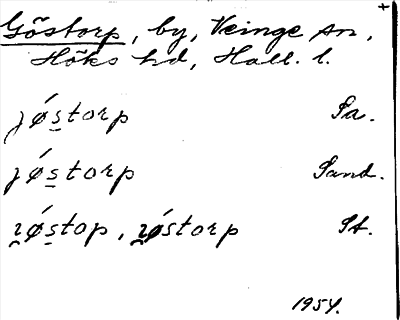 Göstorp, by, Veinge sn, +
Höks hd, Hall. l.
jǿs̱torp Sa.
jǿs̱torp Sand.
ɪ̯ǿs̱top, ɪ̯ǿstorp St.
1954.